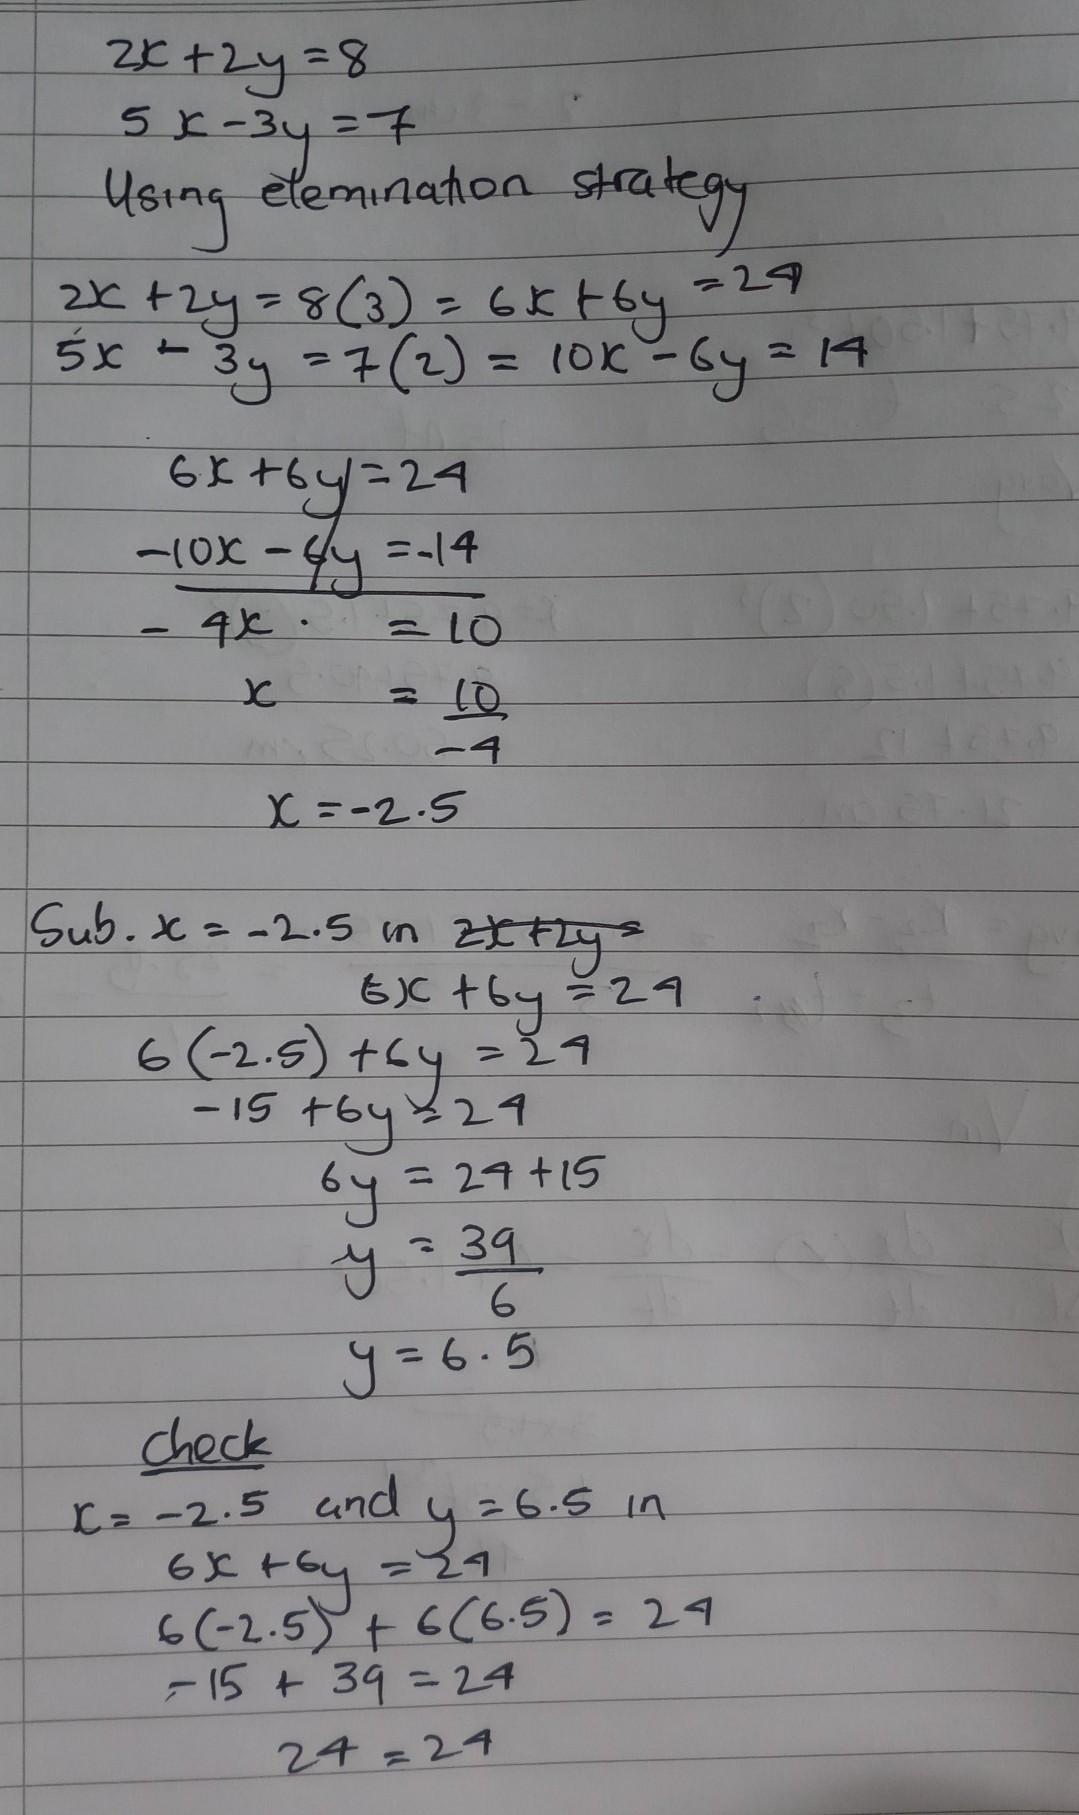 2x + 2y = 8
5x - 3y = 7
Using elemination strategy
2x + 2y = 8(3) = 6x + 6y = 24
5x - 3y = 7(2) = 10x - 6y = 14
6x + 6y = 24
-10x - 6y = -14
- 4x . = 10
x = 10
-4
x = -2.5
Sub. x = -2.5 in 2x + 2y =
6x + 6y = 24
6(-2.5) + 6y = 24
-15 + 6y = 24
6y = 24 + 15
y = 39
6
y = 6.5
check
x = -2.5 and y = 6.5 in
6x + 6y = 24
6(-2.5) + 6(6.5) = 24
-15 + 39 = 24
24 = 24